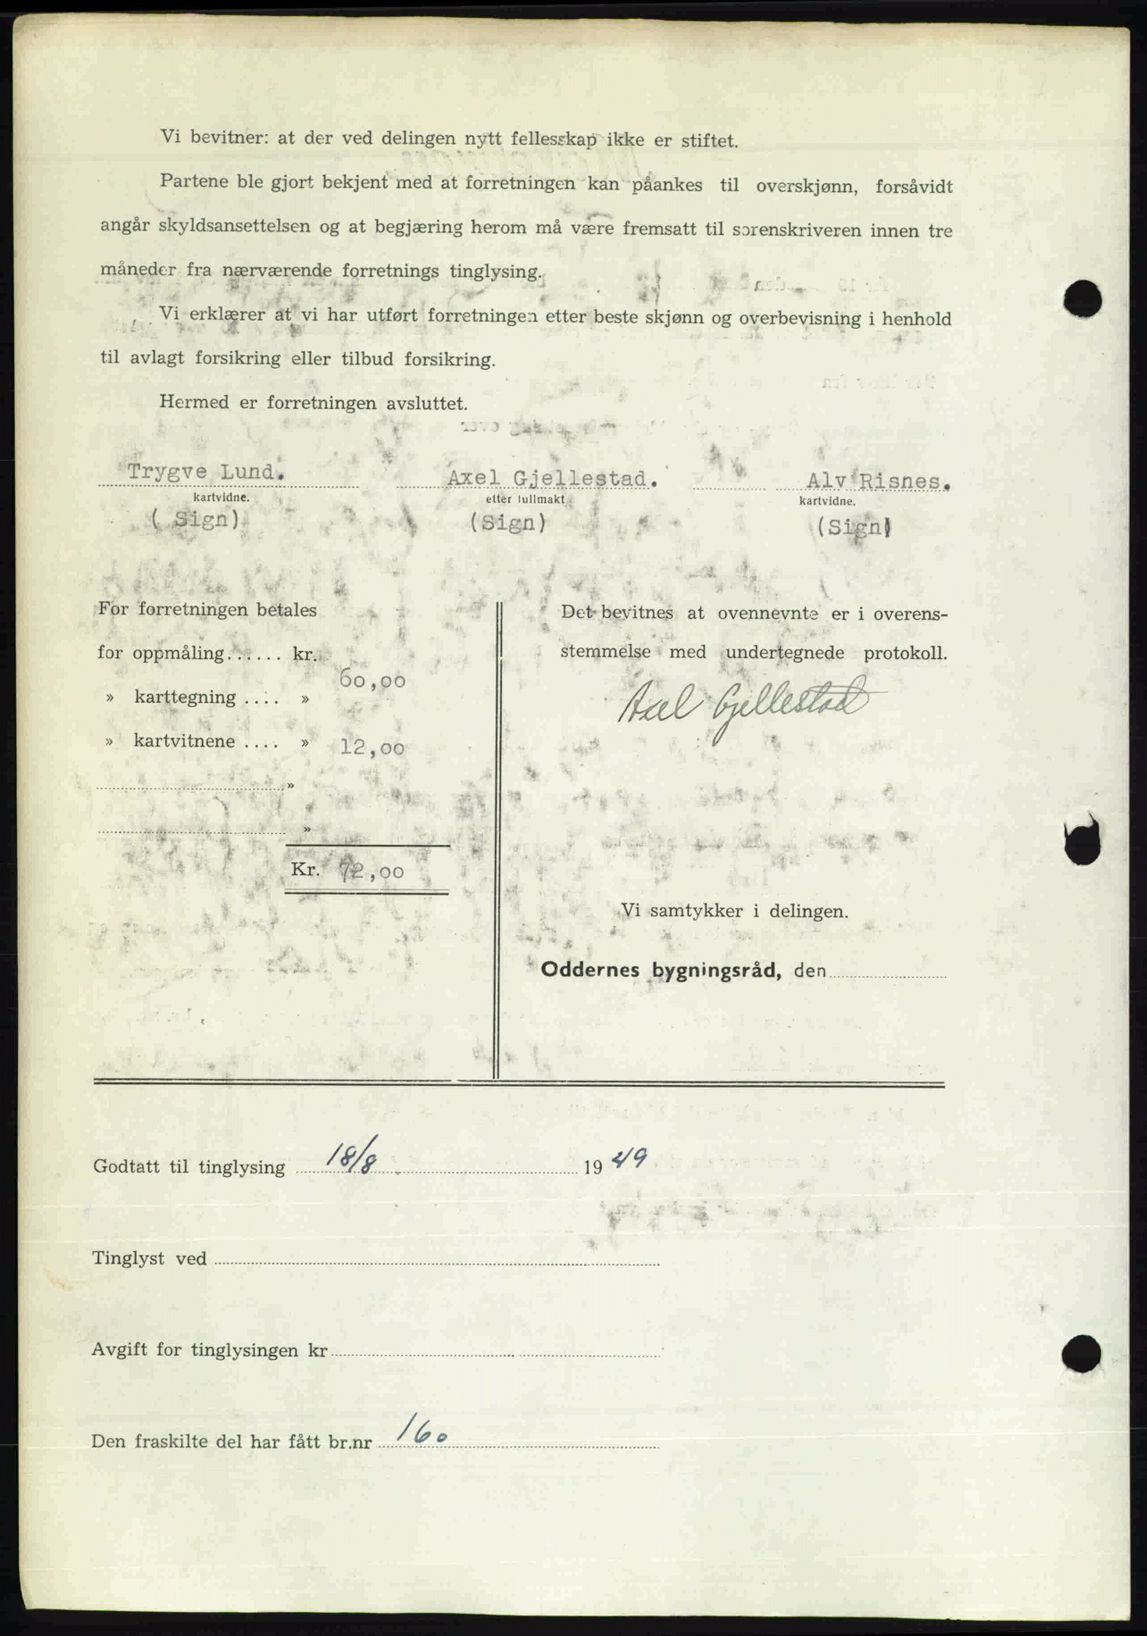 Vi bevitner: at der ved delingen nytt fellesskap ikke er stiftet.
Partene ble gjort bekjent med at forretningen kan påankes til overskjønn, forsåvidt
angår skyldsansettelsen og at begjæring herom må være fremsatt til sorenskriveren innen tre
måneder fra nærværende forretnings tinglysing.
Vi erklærer at vi har utført forretningen etter beste skjønn og overbevisning i henhold
til avlagt forsikring eller tilbud forsikring.
Hermed er forretningen avsluttet.
Trygve Lund. Axel Gjellestad. Alv Risnes.
kartvidne. etter fullmakt kartvidne.
( Sign) (Sign) (Sign)
For forretningen betales
for oppmåling...... kr.
60,00
» karttegning .... »
» kartvitnene .... » 12,00
»
»
Kr. 72,00
Det bevitnes at ovennevnte er i overens-
stemmelse med undertegnede protokoll.
Axel Gjellestad
Vi samtykker i delingen.
Oddernes bygningsråd, den
Godtatt til tinglysing 18/8 1949
Tinglyst ved
Avgift for tinglysingen kr
Den fraskilte del har fått br.nr 160